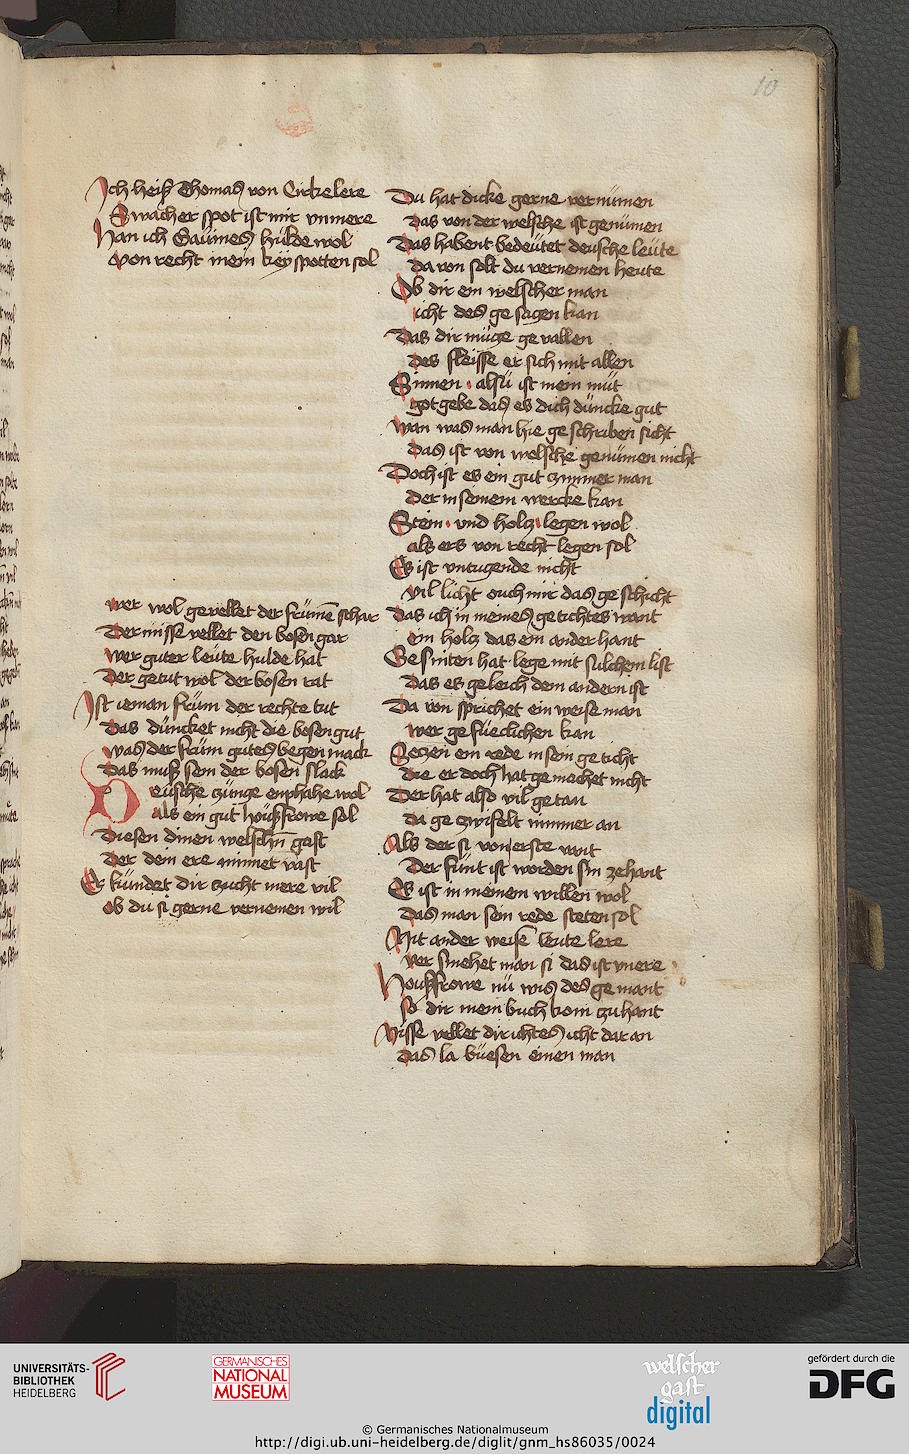 10
Ich heiß Thomas von Cirkelere
Swacher spot ist mir vnmere
Han ich Gaüimes hulde wol
Von recht mein keÿ spotten sol
wer wol gevellet der frümē schar
Der misse vellet den bosen gar
Wer guter leüte hulde hat
Der getut wol der bosen rat
Ist ieman früm der rechte tut
das düncket nicht die bosen gut
was der früm gutes begen mack
Das muß sein der bosen slack
Deütsche zünge enphahe wol
als ein gut houßfrowe sol
Diesen dinen welschn̄ gast
Der dein ere minnet vast
Er kündet dir zucht mere vil
ob du si gerne vernemen wil
Du hat dicke gerne vernümen
Das von der welsche ist genümen
Das habent bedeütet deusche leüte
da von solt du vernemen heute
Ob dir ein welscher man
icht des gesagen kan
Das dir müge gevallen
des fleisse er sich mit allen
Sinnen · alsü ist mein müt
got gebe das es dich düncke gut
Wan was man hie geschriben sicht
das ist von welsche genümen nicht
Doch ist es ein gut zimmer man
der in seinem wercke kan
Stein · vnd holcz legen wol
als ers von recht legen sol
Es ist vntugende nicht
vil licht ouch mir das geschicht
Das ich in meines getichtes want
ein holcz das ein ander hant
Gesniten hat lege mit sulchem list
das es geleich dem andern ist
Da von sprichet ein weise man
wer gefüeclichen kan
Seczen ein rede in sein geticht
die er doch hat gemachet nicht
Der hat also vil getan
da gezwifelt nimmer an
Als der si von erste vant
Der fünt ist worden sin zehant
Es ist in meinem willen wol
das man sein rede steten sol
Mit ander weisē leute lere
ver smehet man si das ist vnere
Houßfrowe nü wis des gemant
so dir mein buch kom zu hant
Misse vellet dir ichtes icht dar an
das la büesen einen man
UNIVERSITÄTS-
BIBLIOTHEK
HEIDELBERG
GERMANISCHES
NATIONAL
MUSEUM
welscher
gast
digital
gefördert durch die
DFG
© Germanisches Nationalmuseum
http://digi.ub.uni-heidelberg.de/diglit/gnm_hs86035/0024